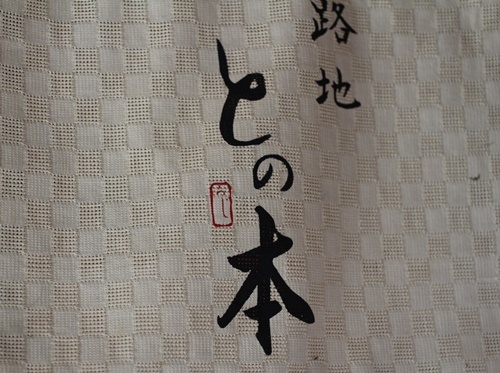 路地
との本